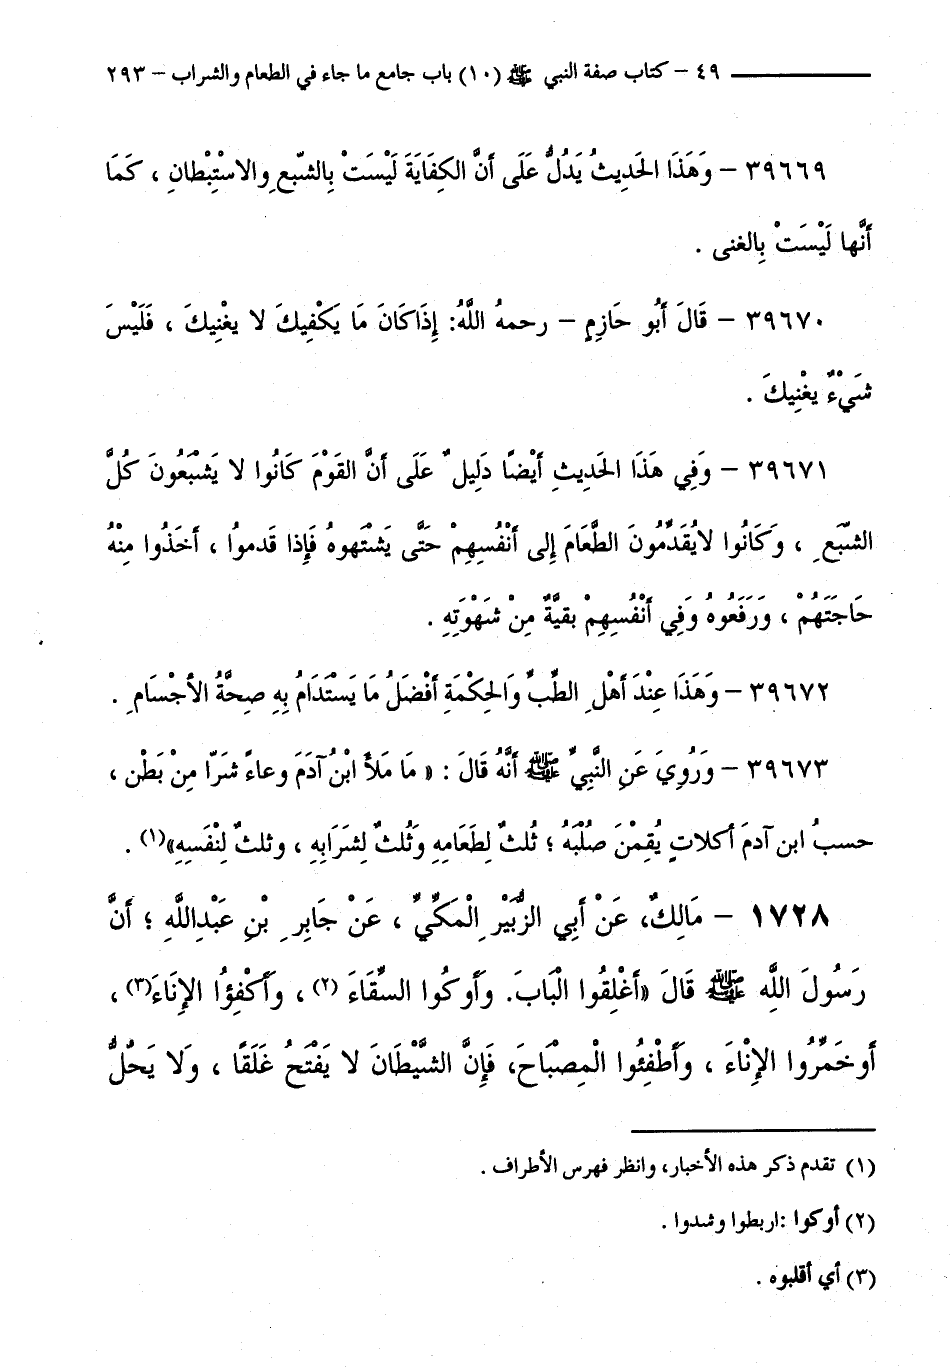 ٤٩ – كتاب صفة النبي ﷺ (١٠) باب جامع ما جاء في الطعام والشراب – ٢٩٣
٣٩٦٦٩ – وَهَذَا الحَدِيثُ يَدُلُّ عَلَى أَنَّ الكِفَايَةَ لَيْسَتْ بِالشّبَعِ والاسْتِبْطانِ ، كَمَا
أَنَّها لَيْسَتْ بِالغنى .
٣٩٦٧٠ – قَالَ أَبُو حَازِمٍ – رحمهُ اللَّهُ: إِذَا كَانَ مَا يَكْفِيكَ لا يغْنِيكَ ، فَلَيْسَ
شَيْءٌ يغْنِيكَ .
٣٩٦٧١ – وَفِي هَذَا الحَدِيثِ أَيْضًا دَلِيلٌ عَلَى أَنَّ القَوْمَ كَانُوا لا يَشْبَعُونَ كُلَّ
الشّبَعِ ، وَكَانُوا لايُقَدِّمُونَ الطَّعَامَ إِلى أَنْفُسِهِمْ حَتَّى يَشْتَهوهُ فَإِذا قَدموُا ، أَخَذُوا مِنْهُ
حَاجَتَهُمْ ، وَرَفَعُوهُ وَفِي أَنْفُسِهِمْ بقيَّةٌ مِنْ شَهْوَتِهِ .
٣٩٦٧٢ – وَهَذَا عِنْدَ أَهْلِ الطِّبِّ وَالحِكْمَةِ أَفْضَلُ مَا يَسْتَدَامُ بِهِ صِحَّةُ الأجْسَامِ .
٣٩٦٧٣ – وَرُوِيَ عَنِ النَّبِيِّ ﷺ أَنَّهُ قَالَ : « مَا مَلأَ ابْنُ آدَمَ وعاءً شَرّا مِنْ بَطْن ،
حسبُ ابن آدمَ أكلاتٍ يُقِمْنَ صُلْبَهُ ؛ ثُلثٌ لِطَعَامِهِ وَثُلثٌ لِشَرَابِهِ ، وثلثٌ لِنْفَسِهِ»(١) .
١٧٢٨ – مَالِكٌ، عَنْ أَبِي الزُّبَيْرِ الْمَكِّيِّ ، عَنْ جَابِرِ بْنِ عَبْدِاللَّهِ ؛ أَنَّ
رَسُولَ اللَّهِ ﷺ قَالَ «أَغْلِقُوا الْبَابَ. وَأَوكُوا السِّقَاءَ (٢) ، وَأَكْفِؤُا الإنَاءَ(٣) ،
أَوخَمِّرُوا الإنْاءَ ، وَأَطْفِئُوا الْمِصْبَاحَ، فَإِنَّ الشَّيْطَانَ لا يَفْتَحُ غَلَقًا ، وَلا يَحُلُّ
(١) تقدم ذكر هذه الأخبار، وانظر فهرس الأطراف .
(٢) أوكوا :اربطوا وشدوا .
(٣) أي أقلبوه .